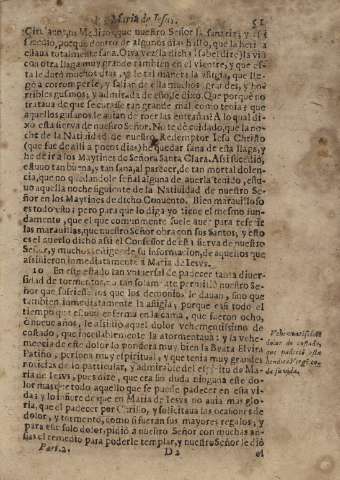 Maria de Iesus. 51
Cirujano, ni Medico, que nuestro Señor la sanaria; y assi
sucedio, porque dentro de algunos dias hallò, que la herida
estaua totalmente sana. Otra vez la dicha Isabel dize, la viò
con otra llaga muy grande tambien en el vientre, y que es-
ta le durò muchos dias, y de tal manera la afligia, que lle-
gò a corromperse, y salian de ella muchos, grandes, y ho-
rribles gusanos, y admirada de ello, le dixo: Que porquè no
trataua de que se curasse tan grande mal como tenia? que
aquellos gusanos le auian de roer las entrañas? A lo qual di-
xo esta sierva de nuestro Señor. No te dè cuidado, que la no-
che de la Natividad de nuestro Redemptor Iesu Christo
(que fue de alli a pocos dias) he de quedar sana de esta llaga, y
he de ir a los Maytines de Señora Santa Clara. Assi sucediò,
estuuo tan buena, y tan sana, al parecer, de tan mortal dolen-
cia, que no quedandole señal alguna de auerla tenido, estu-
uo aquella noche siguiente de la Natiuidad de nuestro Se-
ñor en los Maytines de dicho Conuento. Bien marauilloso
es todo esto; pero para que lo diga yo tiene el mesmo fun-
damento, que el que comunmente suele auer para referir
las marauillas, que nuestro Señor obra con sus Santos, y esto
es el auerlo dicho assi el Confessor de esta sierva de nuestro
Señor, y muchos testigos de su informacion, de aquellos que
assistieron inmediatamente à Maria de Iesvs.
10 En este estado tan vniversal de padecer tanta diver-
sidad de tormentos, no tan solamente permitiò nuestro Se-
ñor que fuessen los que los demonios le dauan, sino que
tambien inmediatamente la afligia, porque casi todo el
tiempo que estuuo enferma en la cama, que fueron ocho,
ò nueue años, le assistiò aquel dolor vehementissimo de
costado, que incessablemente la atormentaua: y la vehe-
mencia de este dolor lo ponderò muy bien la Beata Elvira
Patiño, persona muy espiritual, y que tenia muy grandes
noticias de lo particular, y admirable del espiritu de Ma-
ria de Iesvs, pues dize, que era sin duda ninguna este do-
lor mas que todo aquello que se puede padecer en esta vi-
da; y lo infiere de que en Maria de Iesvs no auia mas glo-
ria, que el padecer por Christo, y solicitaua las ocasiones de
dolor, y tormento, como si fueran sus mayores regalos, y
para este solo dolor, pidiò a nuestro Señor con muchas an-
sias el remedio para poderle templar, y nuestro Señor le diò
Part. 2. D 2 el
Vehementissimo
dolor de costado,
que padeciò esta
bendita Virgen
de su vida.